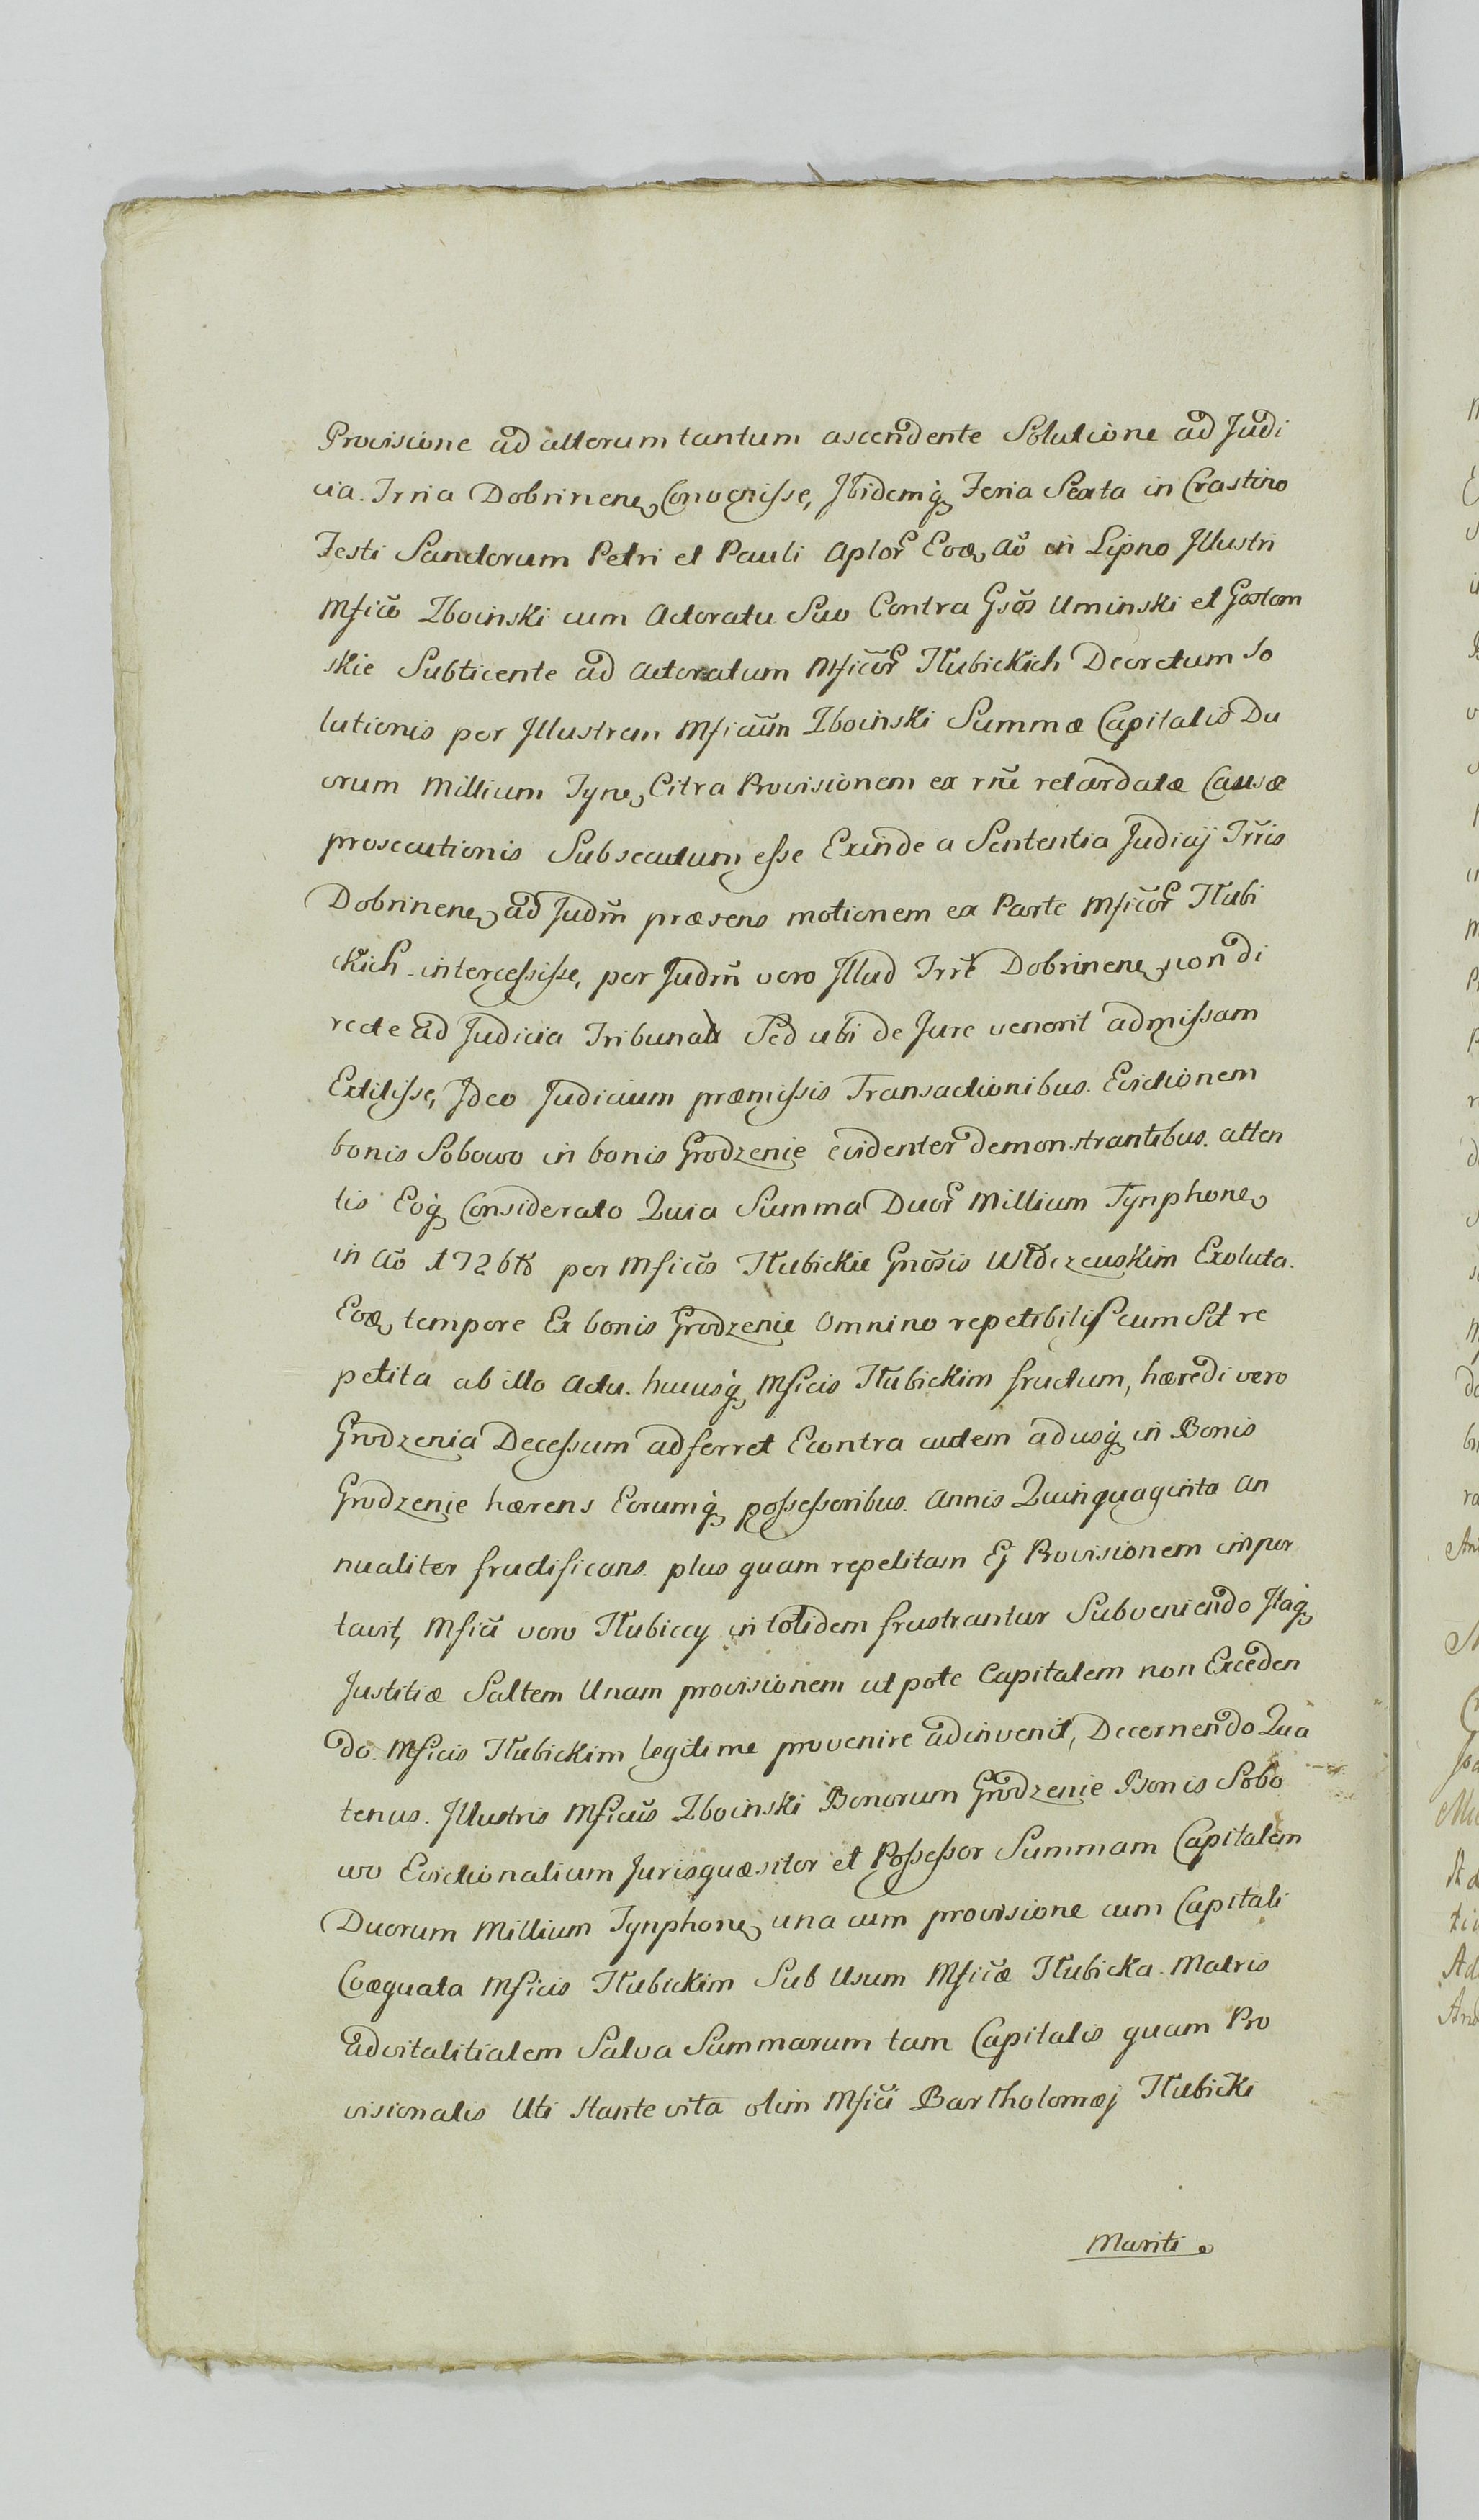 Provisione ad alterum tantum ascendente Solutione ad Judi
cia Trria Dobrinen, Convenisse, Ibidemq, Feria Sexta in Crastino
Festi Sanctorum Petri et Pauli Aplor Eod, Ao in Lipno Illustri
Mfico Zboinski cum Actoratu Suo Contra Gsos Uminski et Gostom
skie Subticente ad Actoratum Mficor Hłubickich Decretum So
lutionis per Illustrem Mficum Zboinski Summæ Capitalis Du
orum Millium Tyne, Citra Provisionem ex rne retardatæ Causæ
prosecutionis Subsecutum esse Exinde a Sententia Judicij Trris
Dobrinene, ad Judm præsens motionem ex Parte Mficor Hłubi
ckich intercessisse, per Judm vero Illud Trre Dobrinene, non di
recte ad Judicia Tribunal Sed ubi de Jure venerit admissam
Extitisse, Ideo Judicium præmissis Transactionibus. Evictionem
bonis Sobowo in bonis Grodzenie evidenter demonstrantibus. atten
tis Eoq, Considerato Quia Summa Duor Millium Tynphone,
in Ao 1726to per Mficos Hłubickie Gnosis Włdczewskim Exoluta.
Eod, tempore Ex bonis Grodzenie Omnino repetibilis cum Sit re
petita ab illo Actu. hucusq, Mficis Hłubickim fructum, hæredi vero
Grodzenia Decessum adferret Econtra autem adusq, in Bonis
Grodzenie hærens Eorumq, possessoribus. Annis Quinquaginta An
nualiter fructificans. plus quam repetitam Ej Provisionem impor
tavit, Mfici vero Hłubiccy in totidem frustrantur Subveniendo Itaq,
Justitiæ Saltem Unam provisionem utpote Capitalem non Exceden
do. Mficis Hłubickim legitime provenire adinvenit, Decernendo Qua
tenus. Illustris Mficus Zboinski Bonorum Grodzenie Bonis Sobo
wo Evictionalium Jurisquæsitor et Possessor Summam Capitalem
Duorum Millium Tynphone, una cum provisione cum Capitali
Coæquata Mficis Hłubickim Sub Usum Mficæ Hłubicka. Matris
advitalitialem Salva Summarum tam Capitalis quam Pro
visionalis Uti Stante vita olim Mfici Bartholomæj Hłubicki
Mariti